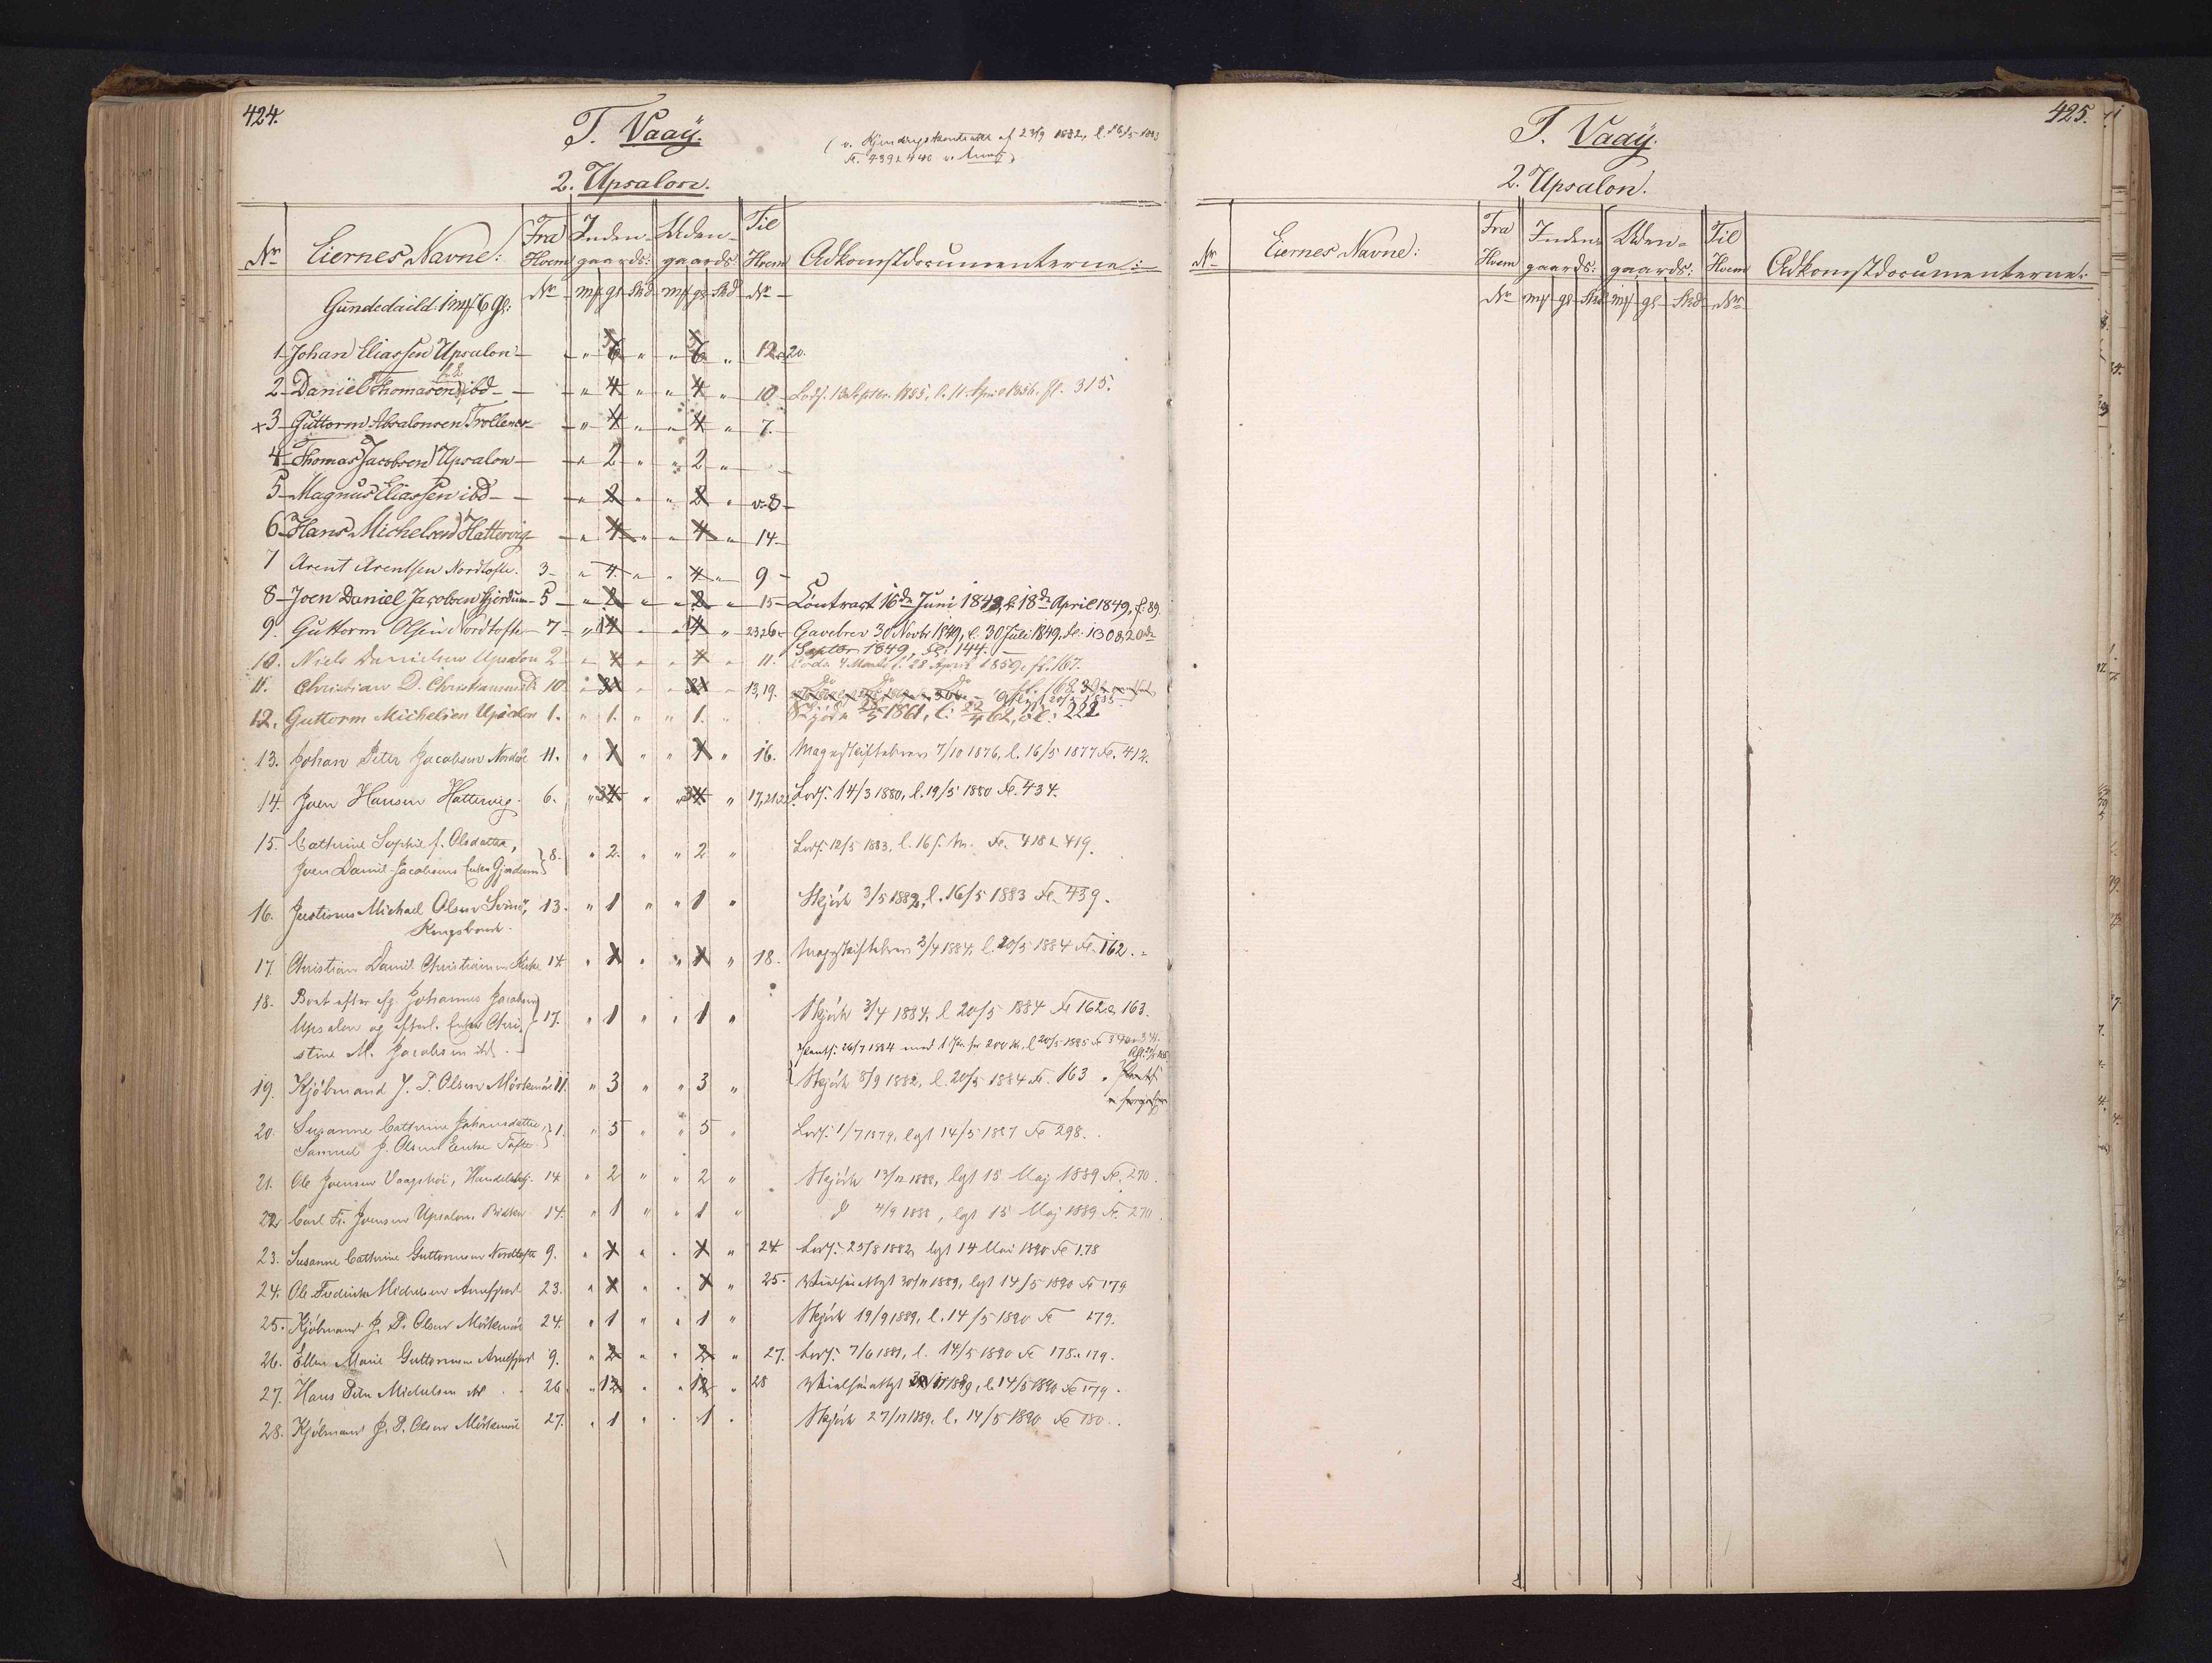 424.
T. Vaaÿ.
(v. af 23/9 1882, l. 16/5 1883
Fl. 439 & 440 v. )
2. Upsalon.
Nr Eiernes Navne: Fra Hvem Nr Inden-gaards: mk gl Skd Uden-gaards: mk gl Skd Til Hvem Nr Adkomstdocumenterne:
Gundedaild: 1 mk 6 gl:
1 Johan Eliassen Upsalon " 6 " " 6 " 12 & 20.
2 Daniel Thomasen ibd " 4 " " 4 " 10 Lovf. 13 Septbr. 1855, l. 11 April 1856. fl. 315.
+3 Guttorm Absalonsen Trollenes " 4 " " 4 " 7.
4 Thomas Jacobsen Upsalon " 2 " " 2 "
5 Magnus Eliassen ibd " 2 " " 2 " 8
6 Hans Michelsen Hattervig " 4 " " 4 " 14
7 Arent Arentsen Nordtofte. 3 " 4 " " 4 " 9
8 Joen Daniel Jacobsen Gjerdum 5 " 2 " " 2 " 15 Contract 16de Juni 1848, l. 18de April 1849, f: 89.
9. Guttorm Olsen Nordtofte 7 " 4 " " 4 " 23,26. Gavebrev 30 Novbr 1849, l. 30 Juli 1849, fl: 130 & 20de
Septbr 1849, fl: 144.
10. Niels Danielsen Upsalon 2 " 4 " " 4 " 11. 4 Marts l. 28 April 1859. fl. 167.
11. Christian D. Christiansen 10 13,19. do do do
12. Guttorm Michelsen Upsalon 1. " 1. " " 1. " Skjøde 28/5 1861, l: 22/4 62, fl: 222
13. Johan Peter Jacobsen Nordøe 11. " 1 " " 1 " 16. Mageskiftebrev 7/10 1876, l. 16/5 1877 Fl. 412.
14. Joen Hansen Hattervig. 6. " 4 " " 4 " 17,21,22. Lovf. 14/3 1880, l. 19/5 1880 Fl. 434.
15. Cathrine Sophie f. Olsdatter,
Joen Daniel Jacobsens Enke Gjerdum } 8. " 2. " " 2 " Lovf. 12/5 1883, l. 16 s. M. Fl. 418 & 419.
16. Justinus Michael Olsen Svinø, 13. " 1 " " 1 " Skjøde 3/5 1882, l. 16/5 1883 Fl. 439.
Kongsbonde.
17. Christian Daniel Christiansen Kirke 14. " 1 " " 1 " 18. Mageskiftebrev 3/4 1884, l. 20/5 1884 Fl. 162.
18. Boet efter afg. Johannes Jacobsen
Upsalon og efterl. Enke Chri- } 17. " 1 " " 1 " Skjøde 3/4 1884, l 20/5 1884 Fl 162 & 163.
stine M. Jacobsen ibd. Pantf. 26/7 1884 med 1 Pr. for 200 Kr, l 20/5 1885 Fl
19. Kjöbmand J. P. Olsen Mörkenöre 11. " 3 " " 3 " Skjøde 8/9 1882, l. 20/5 1884 Fl. 163
20. Susanne Cathrine Johansdatter,
Samuel J. Olsens Enke Tofte } 1. " 5 " " 5 " Lovf. 1/7 1879, lgt 14/5 1887 Fl 298.
21. Ole Joensen Vaagshöi, Handelsbetj. 14. " 2 " " 2 " Skjøde 13/12 1888, lgt 15 Maj 1889 Fl. 270.
22. Carl Fr. Joensen Upsalon, 14. " 1 " " 1 " do 4/9 1888, lgt 15 Maj 1889 Fl. 270.
23. Susanne Cathrine Guttormsen Nordtofte 9. " 1 " " 1 " 24. Lovf. 25/8 1882, lgt 14 Mai 1890 Fl 178
24. Ole Fredrik Michelsen Arnefjord 23. " 1 " " 1 " 25. Vielsesattest 30/11 1889, lgt 14/5 1890 Fl 179
25. Kjöbmand J. P. Olsen Mörkenöre 24. " 1 " " 1 " Skjøde 19/9 1889, l. 14/5 1890 Fl 179.
26. Ellen Marie Guttormsen Arnefjord 9. " 2 " " 2 " 27. Lovf. 7/6 1881, l. 14/5 1890 Fl 178 & 179.
27. Hans Peter Michelsen ibd. 26. " 1 " " 1 " 28 Vielsesattest 1889, l. 14/5 1890 Fl 179.
28. Kjöbmand J. P. Olsen Mörkenöre 27. " 1 " " 1 " Skjøde 27/11 1889, l. 14/5 1890 Fl 180.
425.
T. Vaaÿ.
2. Upsalon.
Nr Eiernes Navne: Fra Hvem Nr Inden-gaards: mk gl Skd Uden-gaards: mk gl Skd Til Hvem Nr Adkomstdocumenterne: